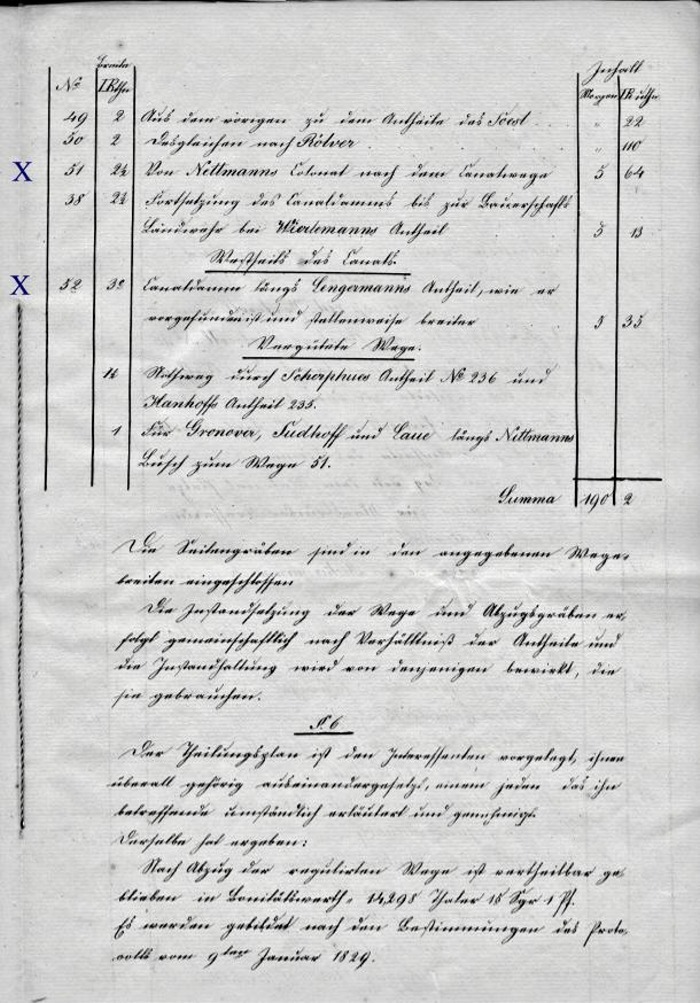 Breite Inhalt
No. □Rthn Morgen □Ruthn
49 2 Aus dem vorigen zu dem Antheile des Soest " 22
50 2 Desgleichen nach Rölver " 110
X 51 2½ Von Nettmanns Colonat nach dem Canalwege 5 64
38 2½ Fortsetzung des Canaldamms bis zur Bauerschafts
Landwehr bei Wierlemanns Antheil 5 13
Westseits des Canals.
X 52 3 Canaldamm längs Lengermanns Antheil, wie er
vorgefunden ist und stellenweise breiter 5 35
Vergütete Wege.
1½ Nothweg durch Scherphues Antheil No 236 und
Hanhoffs Antheil 235.
1 Für Gronover, Sudhoff und Laue längs Nettmanns
Busch zum Wege 51.
Summa 190 2
Die Seitengräben sind in den angegebenen Wege-
breiten eingeschlossen
Die Instandsetzung der Wege und Abzugsgräben er-
folgt gemeinschaftlich nach Verhältniß der Antheile und
die Instandhaltung wird von denjenigen bewirkt, die
sie gebrauchen.
§. 6
Der Theilungsplan ist den Interessenten vorgelegt, ihnen
überall gehörig auseinandergesetzt, einem jeden das ihn
betreffende umständlich erläutert und genehmigt.
Derselbe hat ergeben:
Nach Abzug der regulirten Wege ist vertheilbar ge-
blieben in Bonitätswerth 14298 Thaler 18 Sgr 1 Pf.
Es werden gebildet nach den Bestimmungen des Proto-
colls vom 9ten Januar 1829.